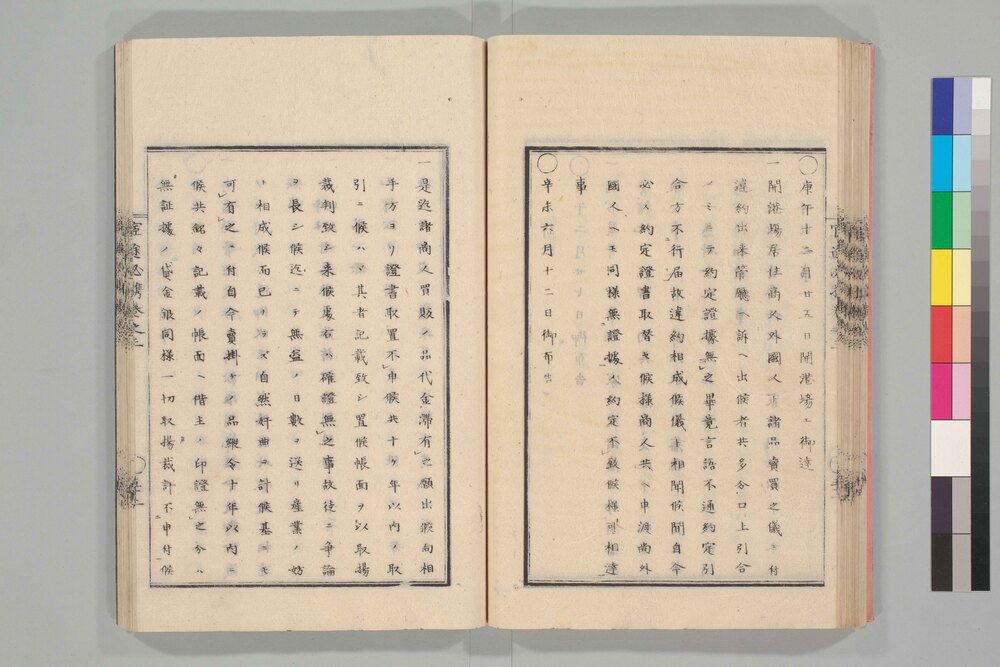 ○庚午十二月廿五日開港場ヱ御達
一開港場居住商人外國人ヨリ諸品賣買之儀ニ付
違約出来管廳ヘ訴ヘ出候者共多分口上引合
ノミニテ約定證據無之畢竟言語不通約定引
合方不行届故違約相成候儀ニ相聞候間自今
必ス約定證書取替セ候様商人共ヘ申渡尚外
國人ヘモ同様無證據ノ約定不致候様可相達
事
○辛未六月十二日御布告
一是迄諸商人買販ノ品代金滞有之願出候尚相
手方ヨリ證書取置不申候共十ヶ年以内ノ取
引ニ候ハヽ其者記載致シ置候帳面ヲ以取揚
裁判致シ来候處右ハ確證無之事故徒ニ争論
ヲ長シ候迄ニテ無益ノ日數ヲ送リ産業ノ妨
ト相成候而已ナラス自然奸曲ヲ計候基ニモ
可有之ニ付自今賣掛ケノ品縦令十年以内ニ
候共銘々記載ノ帳面ヘ借主ノ印證無之分ハ
無証據ノ貸金銀同様一切取揚裁許不申付候